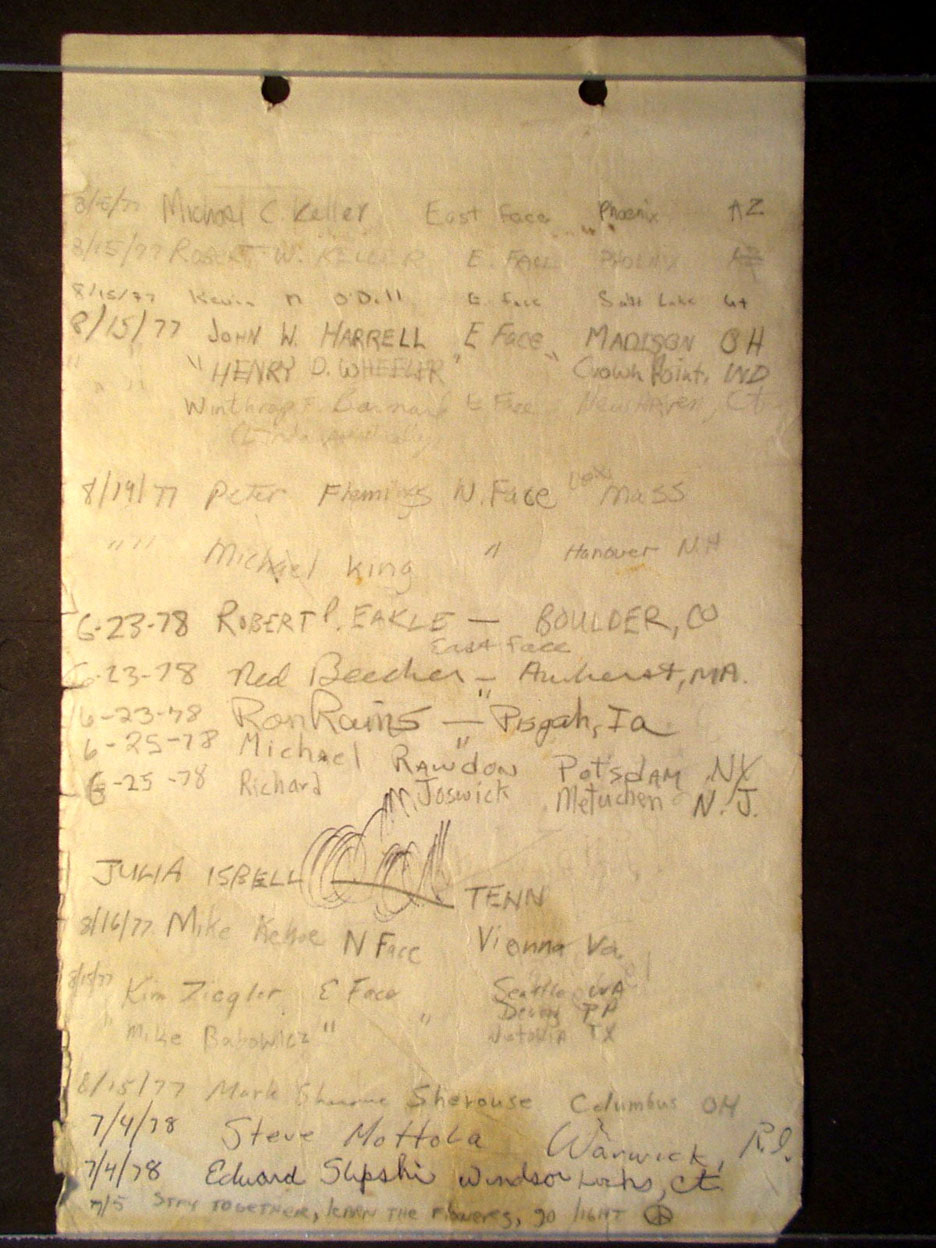 Michael C. Keller East Face Phoenix AZ
8/15/77 ROBERT W. KELLER E. FACE PHOENIX
8/15/77 Kevin E. Face Salt Lake Ut
8/15/77 JOHN W. HARRELL E FACE MADISON OH
" " "HENRY D. WHEELER" " Crown Point, IND
Winthrop F. Barnard E Face New Haven, Ct
8/19/77 Peter Fleming N. Face Mass
" " " Michael King " Hanover N.H
6-23-78 ROBERT P. EAKLE — BOULDER, CO
East Face
6-23-78 Ned Beecher — Amherst, MA.
6-23-78 Ron Rains — " Pisgah, Ia
6-25-78 Michael RAWDON " POTSDAM NY
6-25-78 Richard M. Joswick Metuchen N.J.
JULIA ISBELL TENN
8/16/77 Mike Kehoe N FACE Vienna Va.
8/15/77 Kim Ziegler E Face Seattle WA
Devon PA
" Mike Babowicz " " TX
8/15/77 Mark Sherouse Columbus OH
7/4/78 Steve Mottola Warwick, R.I.
7/4/78 Edward Slipski Windsor Locks, Ct.
7/5 STAY TOGETHER, LEARN THE FLOWERS, GO LIGHT ☮